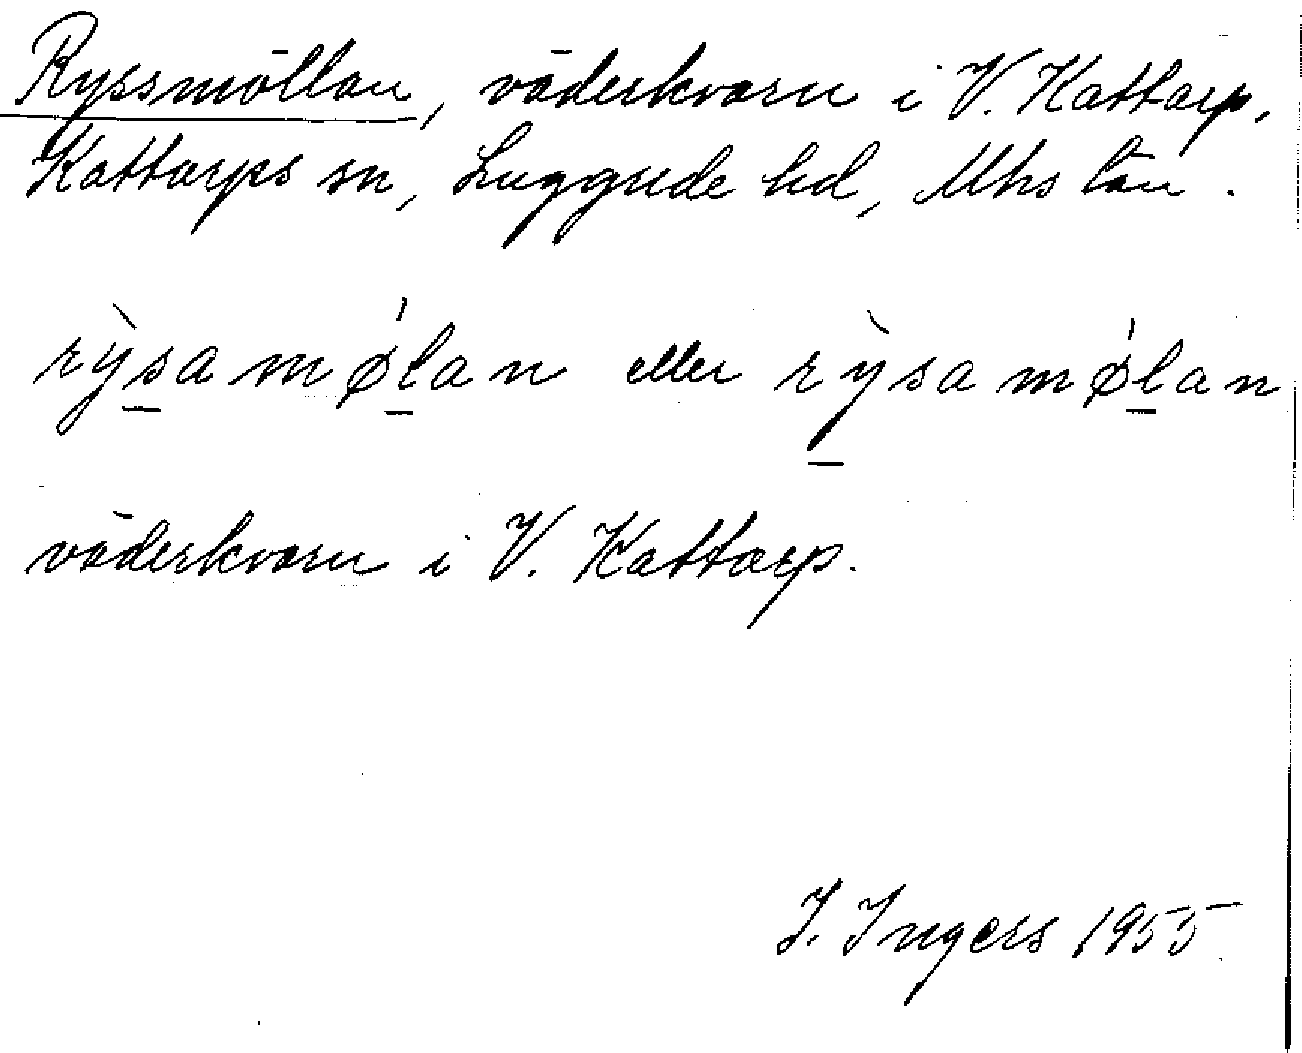 Ryssmöllan, väderkvarn i V. Kattarp,
Kattarps sn, Luggude hd, Mhs län.
rỳs̲amǿl̲an eller rỳ̲samǿl̲an
väderkvarn i V. Kattarp.
I. Ingers 1955.